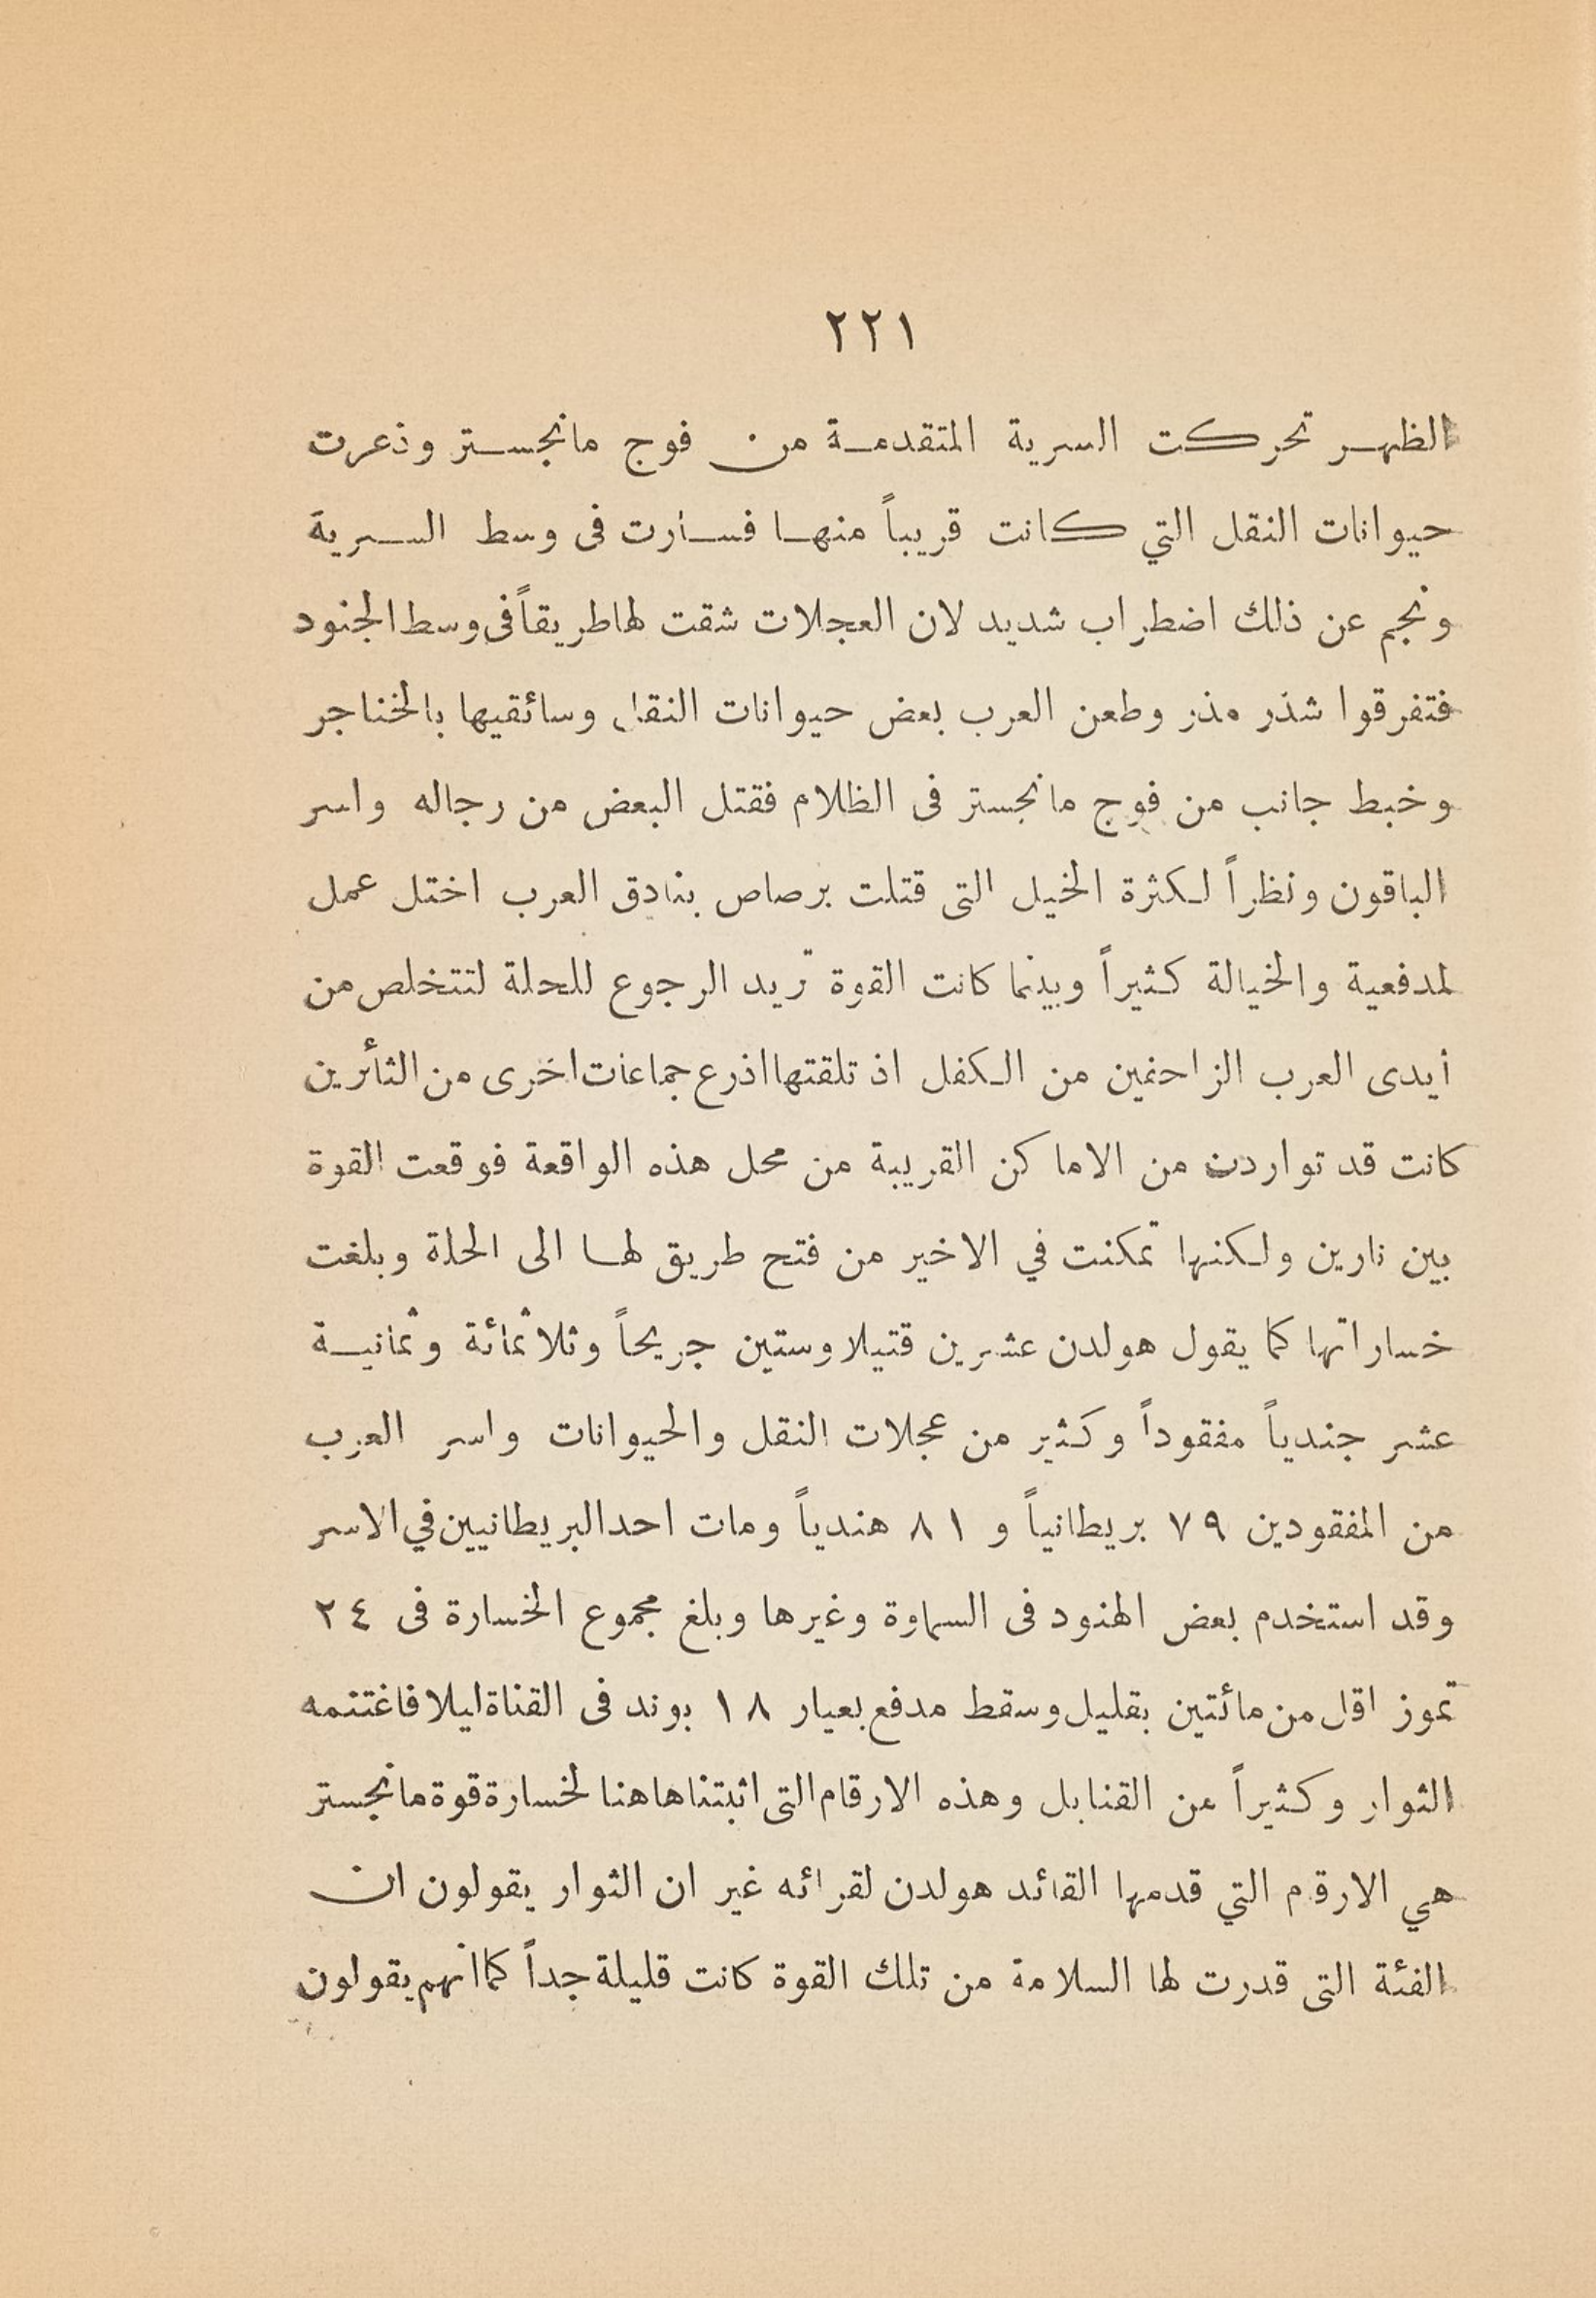 ٢٢١
الظهر تحركت السرية المتقدمة من فوج مانجستر وذعرت
حيوانات النقل التي كانت قريباً منها فسارت فى وسط السرية
ونجم عن ذلك اضطراب شديد لان العجلات شقت لها طريقاً فى وسط الجنود
فتفرقوا شذر مذر وطعن العرب بعض حيوانات النقل وسائقيها بالخناجر
وخبط جانب من فوج مانجستر فى الظلام فقتل البعض من رجاله واسر
الباقون ونظراً لكثرة الخيل التى قتلت برصاص بنادق العرب اختل عمل
لمدفعية والخيالة كثيراً وبينما كانت القوة تريد الرجوع للحلة لتتخلص من
أيدى العرب الزاحفين من الكفل اذ تلقتها اذرع جماعات اخرى من الثأئرين
كانت قد تواردت من الاماكن القريبة من محل هذه الواقعة فوقعت القوة
بين نارين ولكنها تمكنت في الاخير من فتح طريق لها الى الحلة وبلغت
خساراتها كما يقول هولدن عشرين قتيلا وستين جريحاً وثلاثمائة وثمانية
عشر جندياً مفقوداً وكثير من عجلات النقل والحيوانات واسر العرب
من المفقودين ٧٩ بريطانياً و ٨١ هندياً ومات احد البريطانيين في الاسر
وقد استخدم بعض الهنود فى السماوة وغيرها وبلغ مجموع الخسارة فى ٢٤
تموز اقل من مائتين بقليل وسقط مدفع بعيار ١٨ بوند فى القناة ليلا فاغتنمه
الثوار وكثيراً من القنابل وهذه الارقام التى اثبتناها هنا لخسارة قوة مانجستر
هي الارقم التي قدمها القائد هولدن لقرائه غير ان الثوار يقولون ان
الفئة التى قدرت لها السلامة من تلك القوة كانت قليلة جداً كما انهم يقولون